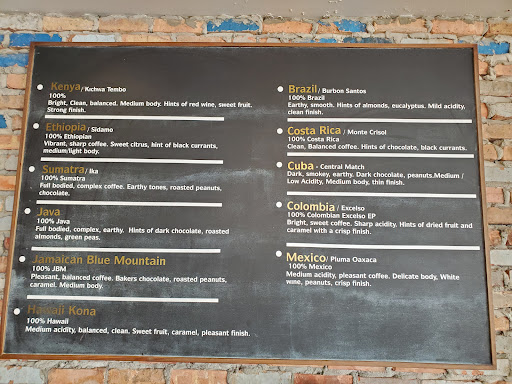 Kenya / Kichwa Tembo
100%
Bright, Clean, balanced. Medium body. Hints of red wine, sweet fruit.
Strong finish.
Ethiopia / Sidamo
100% Ethiopian
Vibrant, sharp coffee. Sweet citrus, hint of black currants,
medium/light body.
Sumatra / Ika
100% Sumatra
Full bodied, complex coffee. Earthy tones, roasted peanuts,
chocolate.
Java
100% Java
Full bodied, complex, earthy. Hints of dark chocolate, roasted
almonds, green peas.
Jamaican Blue Mountain
100% JBM
Pleasant, balanced coffee. Bakers chocolate, roasted peanuts,
caramel. Medium body.
Hawaii Kona
100% Hawaii
Medium acidity, balanced, clean. Sweet fruit, caramel, pleasant finish.
Brazil / Burbon Santos
100% Brazil
Earthy, smooth. Hints of almonds, eucalyptus. Mild acidity,
clean finish.
Costa Rica / Monte Crisol
100% Costa Rica
Clean, Balanced coffee. Hints of chocolate, black currants.
Cuba - Central Match
Dark, smokey, earthy. Dark chocolate, peanuts.Medium /
Low Acidity, Medium body, thin finish.
Colombia / Excelso
100% Colombian Excelso EP
Bright, sweet coffee. Sharp acidity. Hints of dried fruit and
caramel with a crisp finish.
Mexico / Pluma Oaxaca
100% Mexico
Medium acidity, pleasant coffee. Delicate body, White
wine, peanuts, crisp finish.